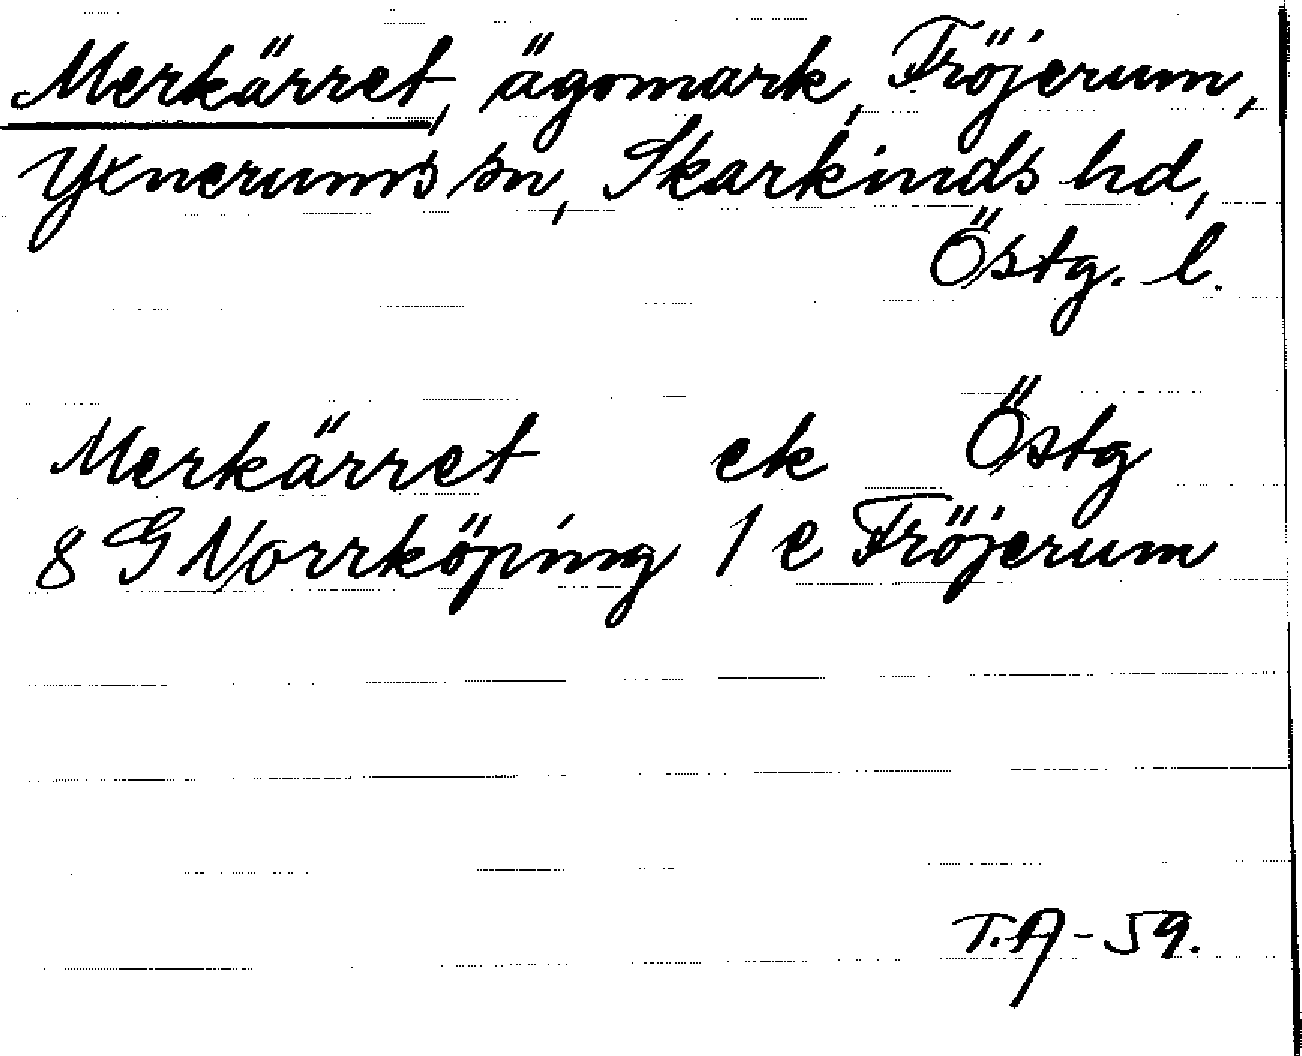 Merkärret, ägomark, Fröjerum,
Yxnerums sn, Skärkinds hd,
Östg. l.
Merkärret ek Östg
8 G Norrköping 1 e Fröjerum
T.A-59.